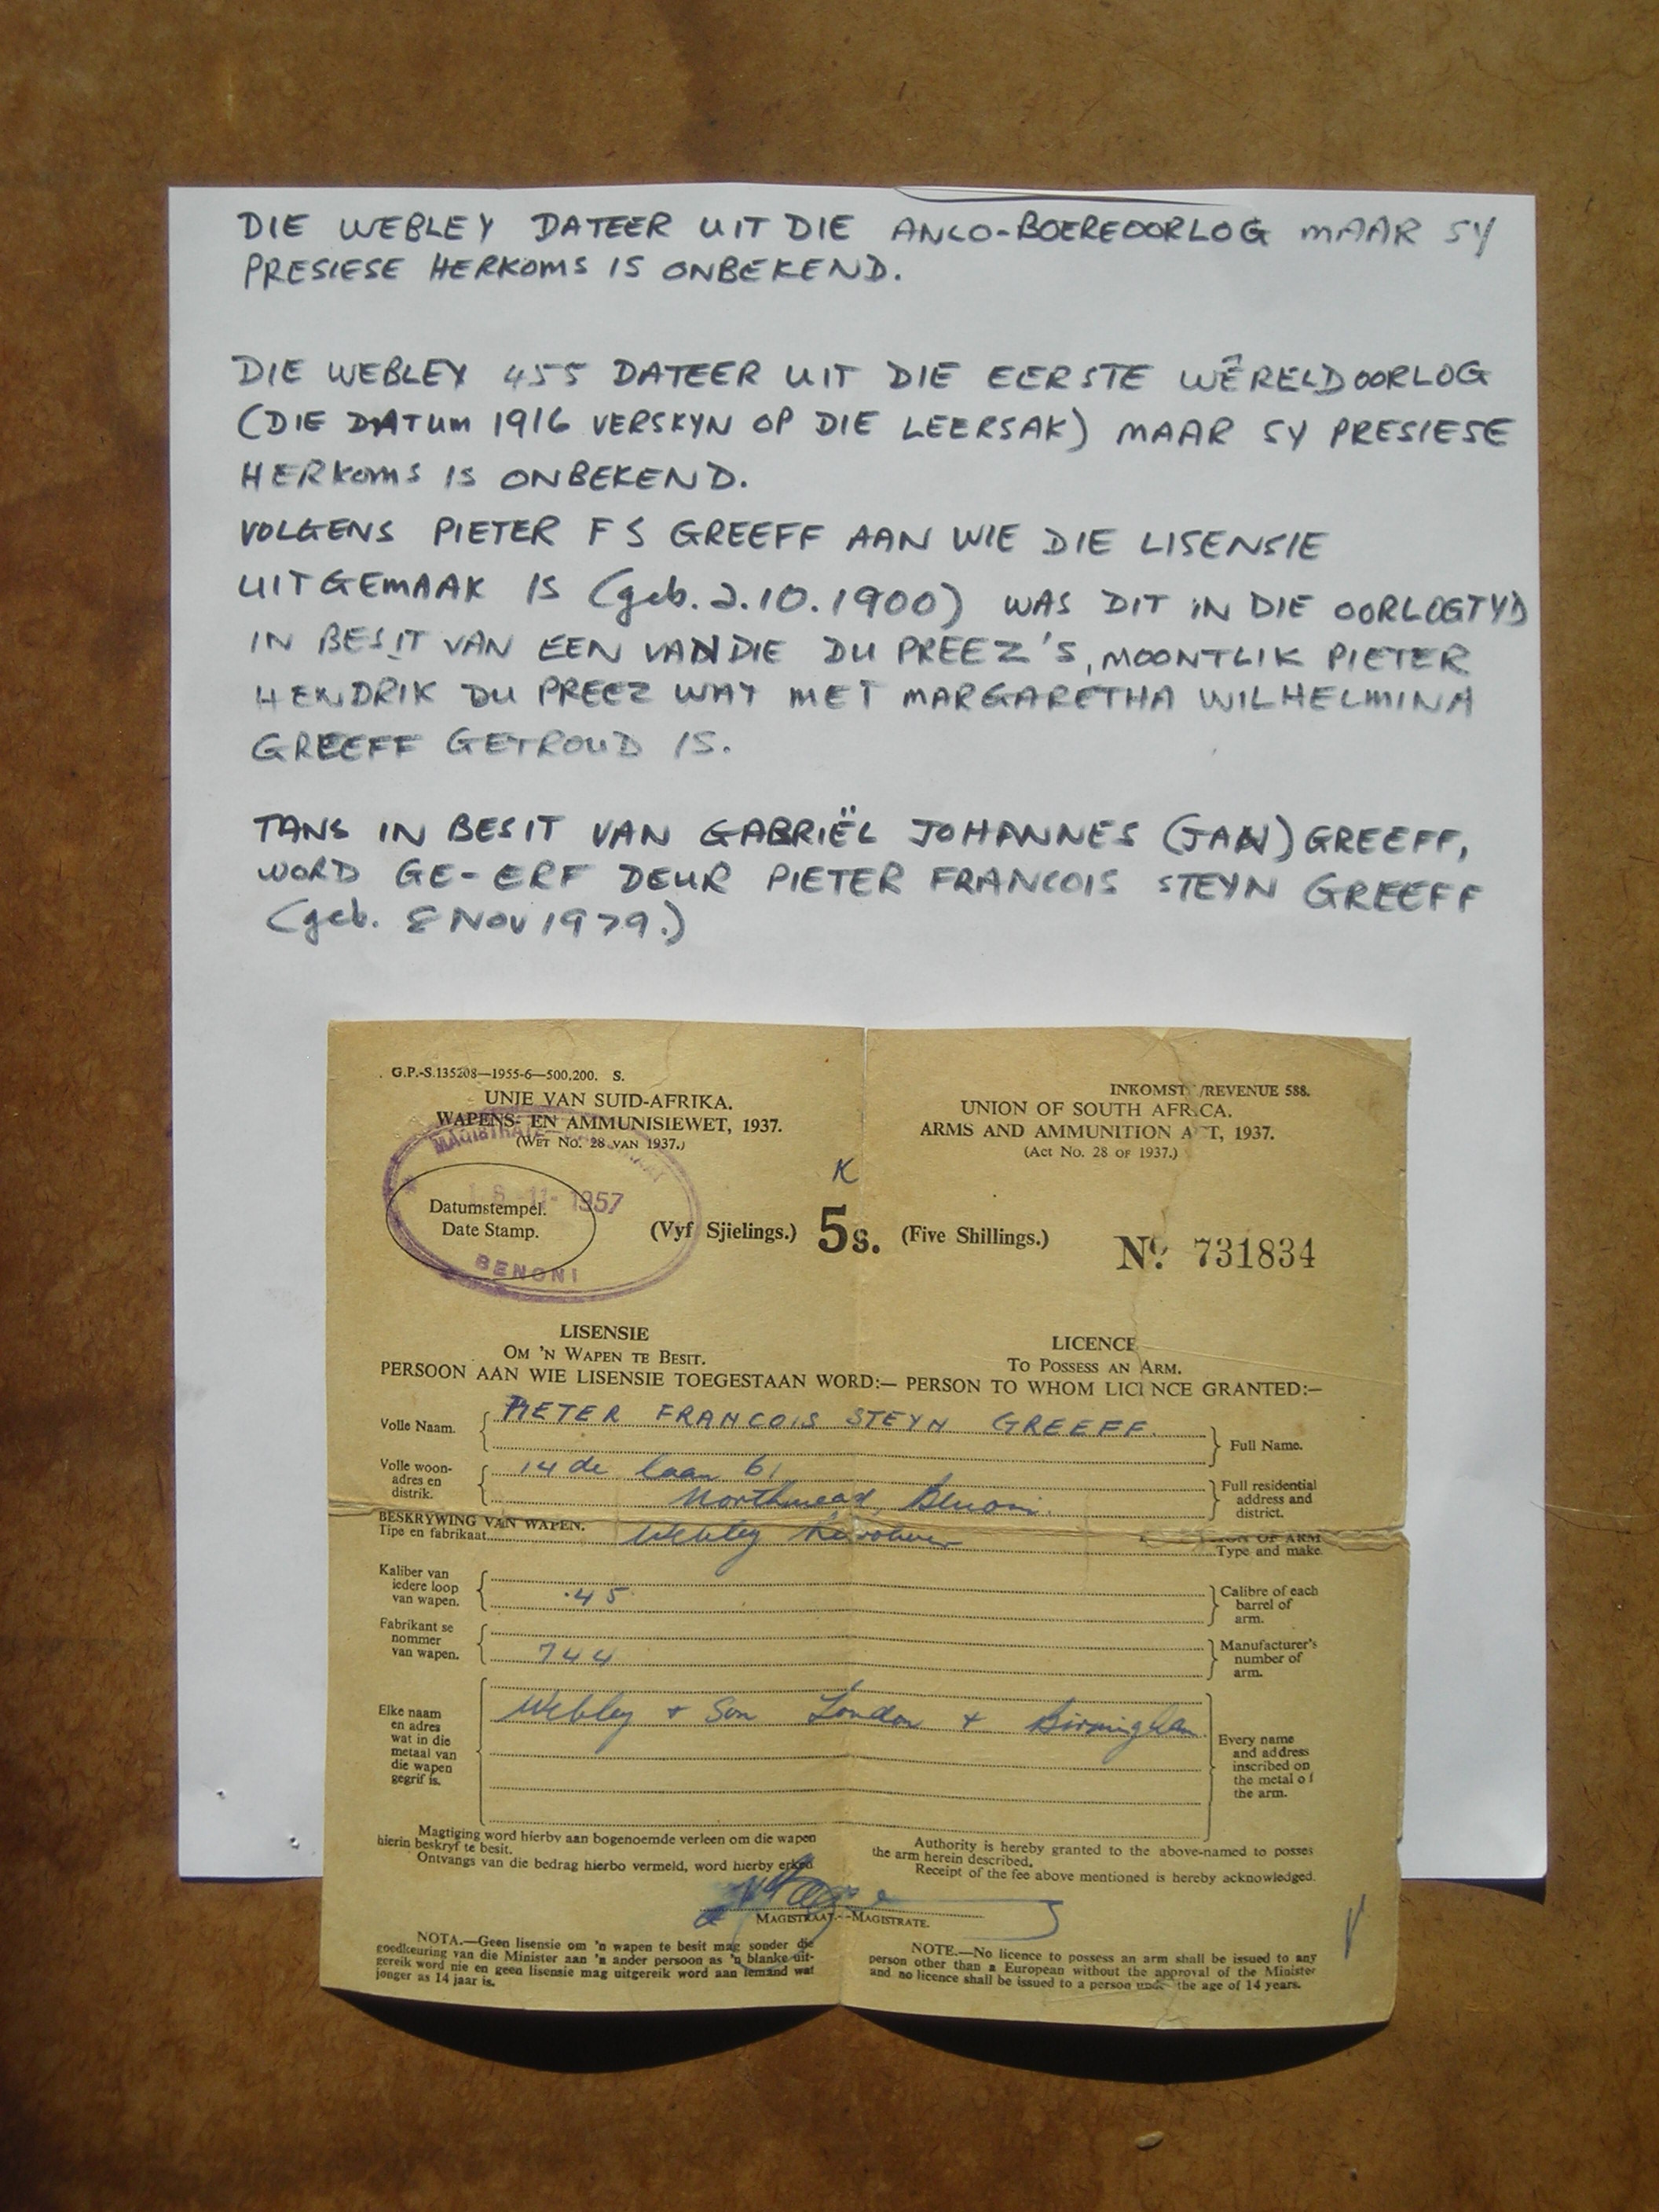 DIE WEBLEY DATEER UIT DIE ANLO-BOEREOORLOG MAAR SY
PRESIESE HERKOMS IS ONBEKEND.
DIE WEBLEY 455 DATEER UIT DIE EERSTE WÊRELDOORLOG
(DIE DATUM 1916 VERSKYN OP DIE LEERSAK) MAAR SY PRESIESE
HERKOMS IS ONBEKEND.
VOLGENS PIETER F S GREEFF AAN WIE DIE LISENSIE
UITGEMAAK IS (geb. 2.10.1900) WAS DIT IN DIE OORLOGTYD
IN BESIT VAN EEN VAN DIE DU PREEZ'S, MOONTLIK PIETER
HENDRIK DU PREEZ WAT MET MARGARETHA WILHELMINA
GREEFF GETROUD IS.
TANS IN BESIT VAN GABRIËL JOHANNES (JAN) GREEFF,
WORD GE-ERF DEUR PIETER FRANCOIS STEYN GREEFF
(geb. 8 NOV 1979.)
G.P.-S.135208—1955-6—500,200. S.
INKOMST /REVENUE 588.
UNIE VAN SUID-AFRIKA.
WAPENS- EN AMMUNISIEWET, 1937.
(WET No. 28 VAN 1937.)
UNION OF SOUTH AFR.CA.
ARMS AND AMMUNITION A T, 1937.
(Act No. 28 OF 1937.)
MAGISTRATE
-11-1957
BENONI
Datumstempel.
Date Stamp.
K
(Vyf Sjielings.) 5s. (Five Shillings.)
No. 731834
LISENSIE
OM 'N WAPEN TE BESIT.
LICENCE
TO POSSESS AN ARM.
PERSOON AAN WIE LISENSIE TOEGESTAAN WORD:— PERSON TO WHOM LICI NCE GRANTED:—
Volle Naam. PIETER FRANCOIS STEYN GREEFF. Full Name.
Volle woon-
adres en
distrik.
14 de laan 61
Northmead, Benoni.
Full residential
address and
district.
BESKRYWING VAN WAPEN.
OF ARM
Tipe en fabrikaat Webley Revolver Type and make
Kaliber van
iedere loop
van wapen.
.45
Calibre of each
barrel of
arm.
Fabrikant se
nommer
van wapen.
744
Manufacturer's
number of
arm.
Elke naam
en adres
wat in die
metaal van
die wapen
gegrif is.
Webley + Son London + Birmingham.
Every name
and address
inscribed on
the metal of
the arm.
Magtiging word hierby aan bogenoemde verleen om die wapen
hierin beskryf te besit.
Ontvangs van die bedrag hierbo vermeld, word hierby erken
Authority is hereby granted to the above-named to posses
the arm herein described.
Receipt of the fee above mentioned is hereby acknowledged.
MAGISTRAAT.—MAGISTRATE.
NOTA.—Geen lisensie om 'n wapen te besit mag sonder die
goedkeuring van die Minister aan 'n ander persoon as 'n blanke uit-
gereik word nie en geen lisensie mag uitgereik word aan iemand wat
jonger as 14 jaar is.
NOTE.—No licence to possess an arm shall be issued to any
person other than a European without the approval of the Minister
and no licence shall be issued to a person unde the age of 14 years.